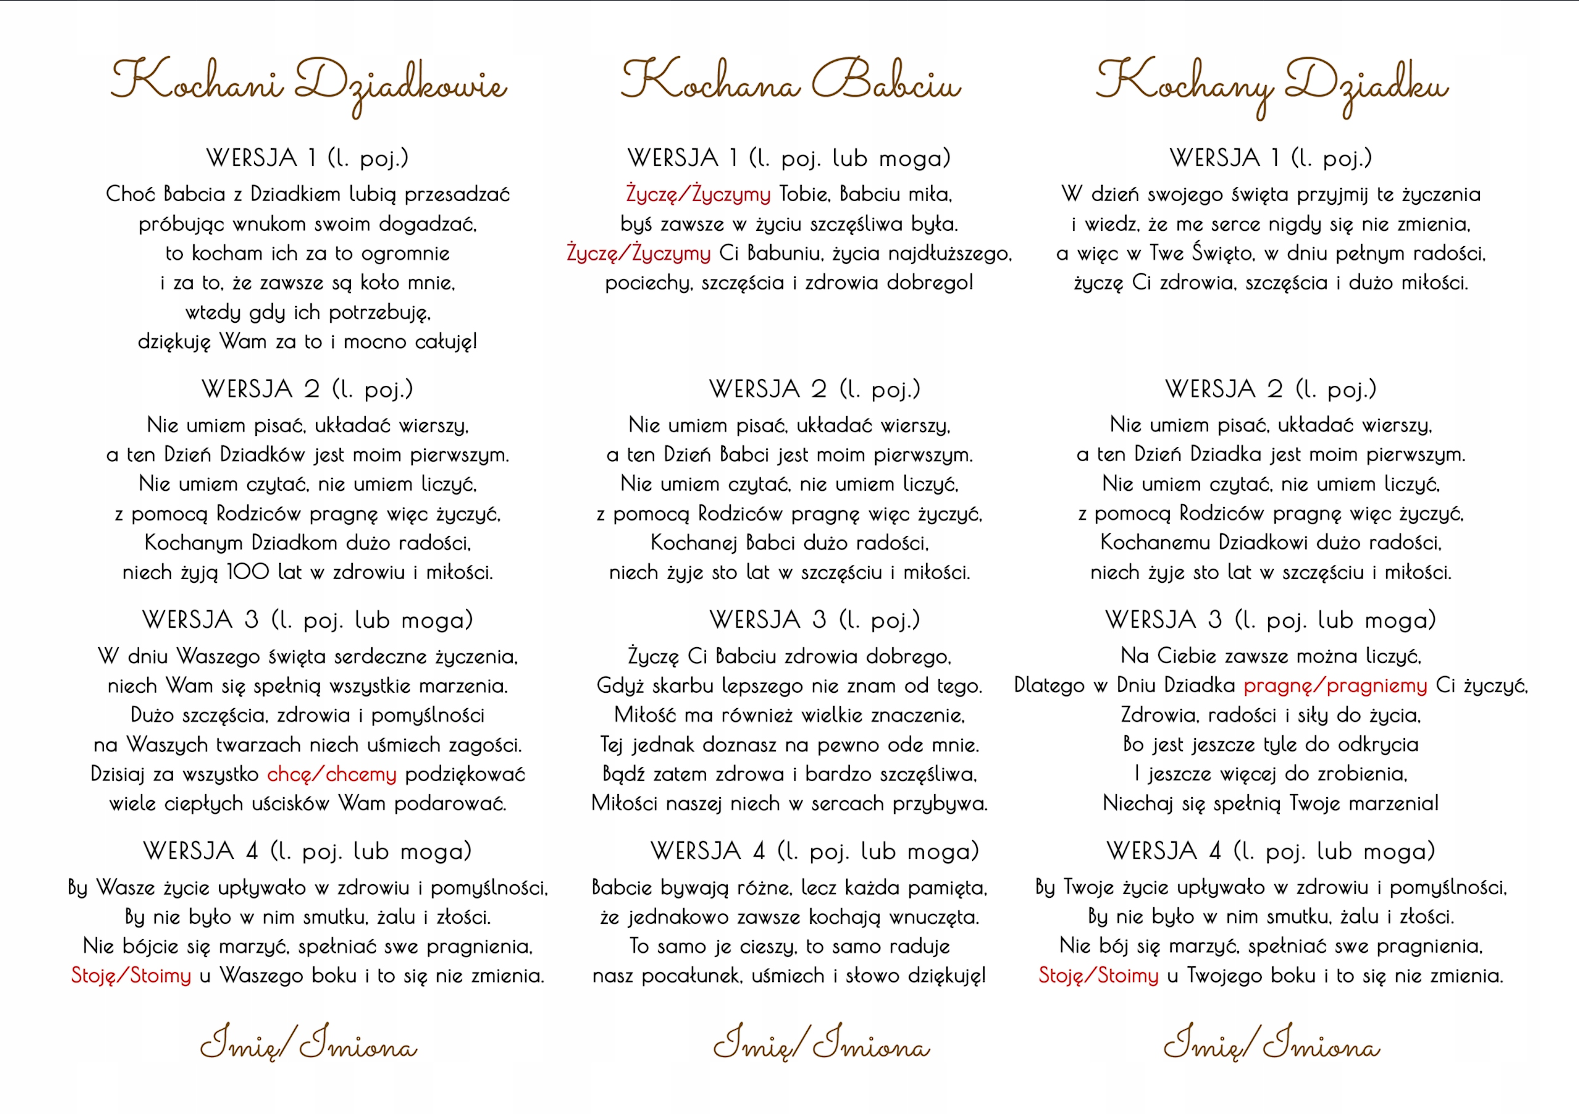 Kochani Dziadkowie
WERSJA 1 (l. poj.)
Choć Babcia z Dziadkiem lubią przesadzać
próbując wnukom swoim dogadzać,
to kocham ich za to ogromnie
i za to, że zawsze są koło mnie,
wtedy gdy ich potrzebuję,
dziękuję Wam za to i mocno całuję!
WERSJA 2 (l. poj.)
Nie umiem pisać, układać wierszy,
a ten Dzień Dziadków jest moim pierwszym.
Nie umiem czytać, nie umiem liczyć,
z pomocą Rodziców pragnę więc życzyć,
Kochanym Dziadkom dużo radości,
niech żyją 100 lat w zdrowiu i miłości.
WERSJA 3 (l. poj. lub moga)
W dniu Waszego święta serdeczne życzenia,
niech Wam się spełnią wszystkie marzenia.
Dużo szczęścia, zdrowia i pomyślności
na Waszych twarzach niech uśmiech zagości.
Dzisiaj za wszystko chcę/chcemy podziękować
wiele ciepłych uścisków Wam podarować.
WERSJA 4 (l. poj. lub moga)
By Wasze życie upływało w zdrowiu i pomyślności,
By nie było w nim smutku, żalu i złości.
Nie bójcie się marzyć, spełniać swe pragnienia,
Stoję/Stoimy u Waszego boku i to się nie zmienia.
Imię/Imiona
Kochana Babciu
WERSJA 1 (l. poj. lub moga)
Życzę/Życzymy Tobie, Babciu miła,
byś zawsze w życiu szczęśliwa była.
Życzę/Życzymy Ci Babuniu, życia najdłuższego,
pociechy, szczęścia i zdrowia dobrego!
WERSJA 2 (l. poj.)
Nie umiem pisać, układać wierszy,
a ten Dzień Babci jest moim pierwszym.
Nie umiem czytać, nie umiem liczyć,
z pomocą Rodziców pragnę więc życzyć,
Kochanej Babci dużo radości,
niech żyje sto lat w szczęściu i miłości.
WERSJA 3 (l. poj.)
Życzę Ci Babciu zdrowia dobrego,
Gdyż skarbu lepszego nie znam od tego.
Miłość ma również wielkie znaczenie,
Tej jednak doznasz na pewno ode mnie.
Bądź zatem zdrowa i bardzo szczęśliwa,
Miłości naszej niech w sercach przybywa.
WERSJA 4 (l. poj. lub moga)
Babcie bywają różne, lecz każda pamięta,
że jednakowo zawsze kochają wnuczęta.
To samo je cieszy, to samo raduje
nasz pocałunek, uśmiech i słowo dziękuję!
Imię/Imiona
Kochany Dziadku
WERSJA 1 (l. poj.)
W dzień swojego święta przyjmij te życzenia
i wiedz, że me serce nigdy się nie zmienia,
a więc w Twe Święto, w dniu pełnym radości,
życzę Ci zdrowia, szczęścia i dużo miłości.
WERSJA 2 (l. poj.)
Nie umiem pisać, układać wierszy,
a ten Dzień Dziadka jest moim pierwszym.
Nie umiem czytać, nie umiem liczyć,
z pomocą Rodziców pragnę więc życzyć,
Kochanemu Dziadkowi dużo radości,
niech żyje sto lat w szczęściu i miłości.
WERSJA 3 (l. poj. lub moga)
Na Ciebie zawsze można liczyć,
Dlatego w Dniu Dziadka pragnę/pragniemy Ci życzyć,
Zdrowia, radości i siły do życia,
Bo jest jeszcze tyle do odkrycia
I jeszcze więcej do zrobienia,
Niechaj się spełnią Twoje marzenia!
WERSJA 4 (l. poj. lub moga)
By Twoje życie upływało w zdrowiu i pomyślności,
By nie było w nim smutku, żalu i złości.
Nie bój się marzyć, spełniać swe pragnienia,
Stoję/Stoimy u Twojego boku i to się nie zmienia.
Imię/Imiona